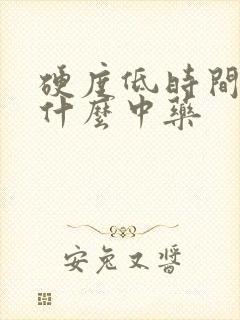 硬度低時間
什麼中藥
安兔又醬